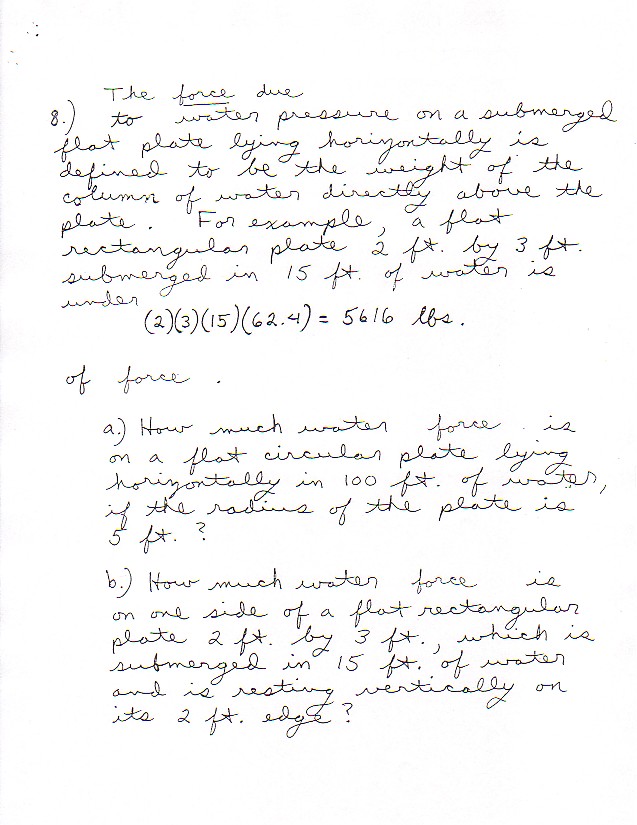 The force due
8.) to water pressure on a submerged
flat plate lying horizontally is
defined to be the weight of the
column of water directly above the
plate. For example, a flat
rectangular plate 2 ft. by 3 ft.
submerged in 15 ft. of water is
under
(2)(3)(15)(62.4) = 5616 lbs.
of force.
a.) How much water force is
on a flat circular plate lying
horizontally in 100 ft. of water,
if the radius of the plate is
5 ft.?
b.) How much water force is
on one side of a flat rectangular
plate 2 ft. by 3 ft., which is
submerged in 15 ft. of water
and is resting vertically on
its 2 ft. edge?